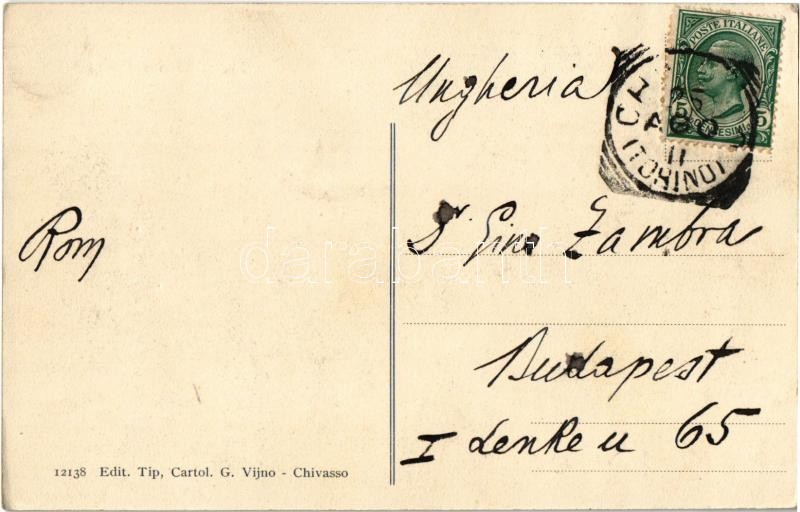 POSTE ITALIANE
5 CENTESIMI 5
Ungheria
AGO
11
(TORINO)
Rom
Dr. Gino Zambra
darabanth
Budapest
I Lenke u 65
12138 Edit. Tip, Cartol. G. Vijno - Chivasso